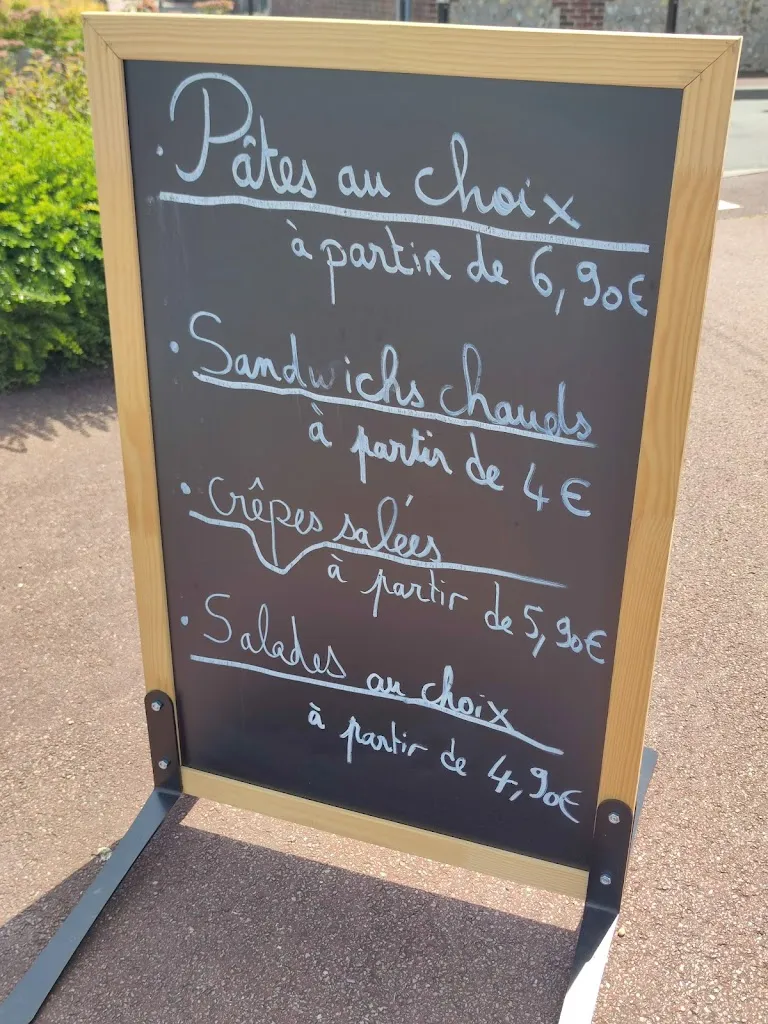 · Pâtes au choix
à partir de 6,90€
· Sandwichs chauds
à partir de 4€
· Crêpes salées
à partir de 5,90€
· Salades au choix
à partir de 4,90€